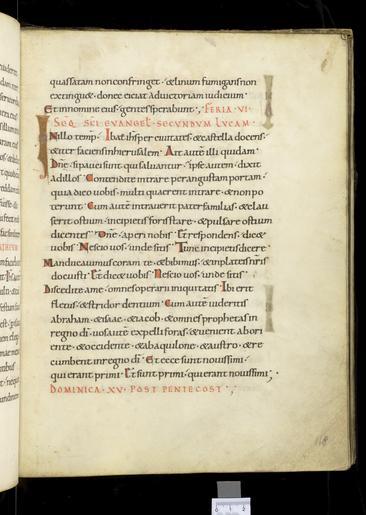 quassatam non confringet · & linum fumigans non
extingu& · donec eiciat ad uictoriam iudicium ·
Et in nomine eius · gentes sperabunt · FERIA · VI ·
SEQ SCI EVANGEL · SECUNDUM LUCAM ·
In illo temp · Ibat ihs per ciuitates · & castella docens ·
& iter faciens in hierusalem · Ait autem illi quidam ·
Dne · si pauci sunt qui saluantur · ipse autem dixit
ad illos · Contendite intrare per angustam portam ·
quia dico uobis · multi quaerent intrare · & non po
terunt · Cum autem intrauerit pater familias · & clau
serit ostium · incipietis foris stare · & pulsare ostium
dicentes · Dne · aperi nobis · Et respondens · dic&
uobis · Nescio uos · unde sitis · Tunc incipietis dicere ·
Manducauimus coram te · & bibimus · & in plateis nris
docuisti · Et dic& uobis · Nescio uos · unde sitis ·
Discedite a me · omnes operarii iniquitatis · Ibi erit
fletus · & stridor dentium · Cum autem uideritis
abraham · & isaac · & iacob · & omnes prophetas in
regno di · uos autem expelli foras · & uenient ab ori
ente · & occidente · & ab aquilone · & austro · & re
cumbent in regno di · Et ecce sunt nouissimi ·
qui erant primi · Et sunt primi · qui erant nouissimi ;
DOMINICA · XV · POST PENTECOST · ;